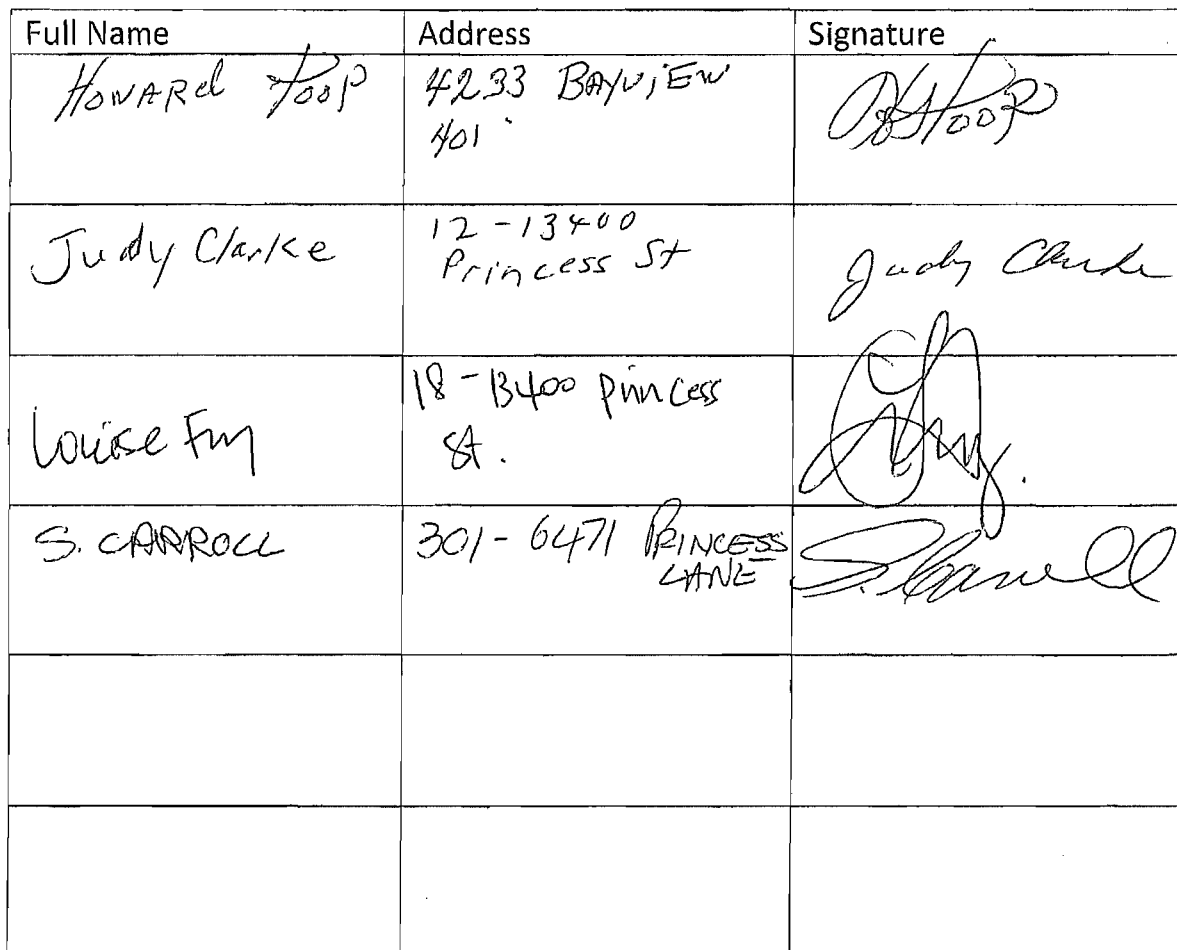 Full Name Address Signature
Howard Toop 4233 BAYVIEW
401
Judy Clarke 12-13400
Princess St
Judy Clarke
Louise 18-13400 princess
st.
S. CARROLL 301-6471 PRINCESS
LANE
S. Carroll